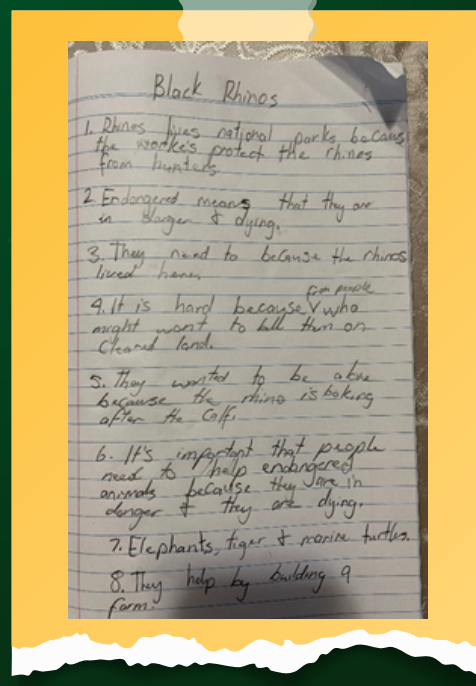 Black Rhinos
1. Rhinos lives national parks becaus
the worke's protect the rhines
from hunters.
2 Endangered means that they are
in danger & dying.
3. They need to because the rhinos
lived here.
from people
4. It is hard because V who
might want to kill them on
Cleared land.
5. They wanted to be alone
because the rhino is looking
after the calf.
6. It's important that people
need to help endangered
animals because they are in
danger & they are dying.
7. Elephants, tiger & marine turtles.
8. They help by building a
farm.